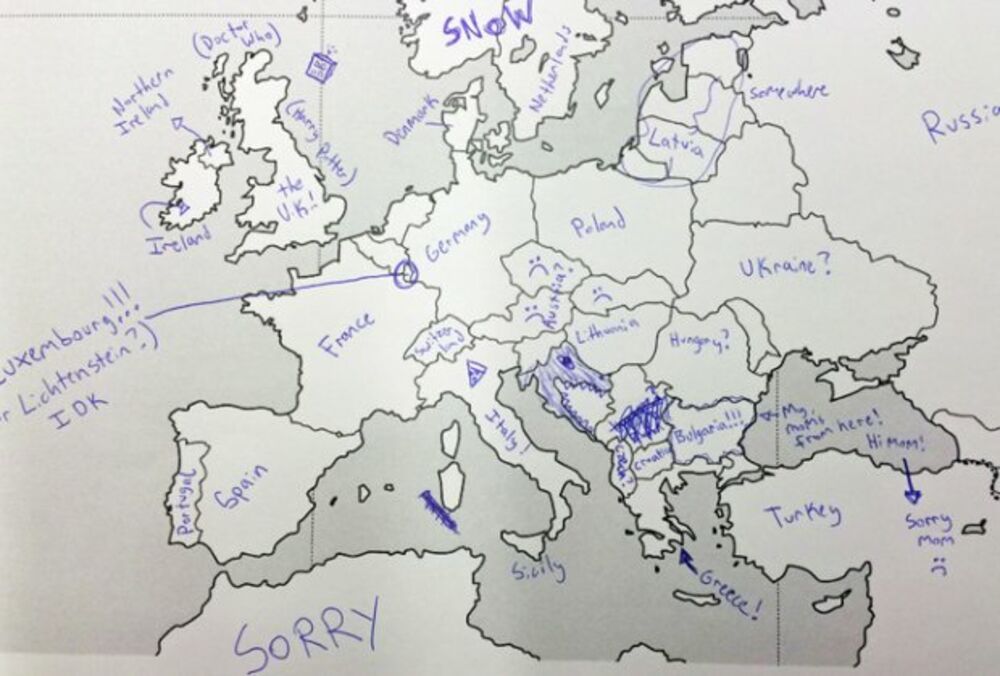 SNOW
(Doctor
Who)
Northern
Ireland
(Harry Potter)
the
U.K.!
Ireland
Denmark
Netherlands
somewhere
Latvia
Russia
Germany
Poland
Ukraine?
Luxembourg!!!
r Lichtenstein?)
IDK
France
Switzer
land
Austria?
Lithuania
Hungary?
Italy!
Bulgaria!!!
My
mom's
from here!
Hi Mom!
Croatia
Czech?
Portugal
Spain
Turkey
Sorry
mom
Sicily
Greece!
SORRY